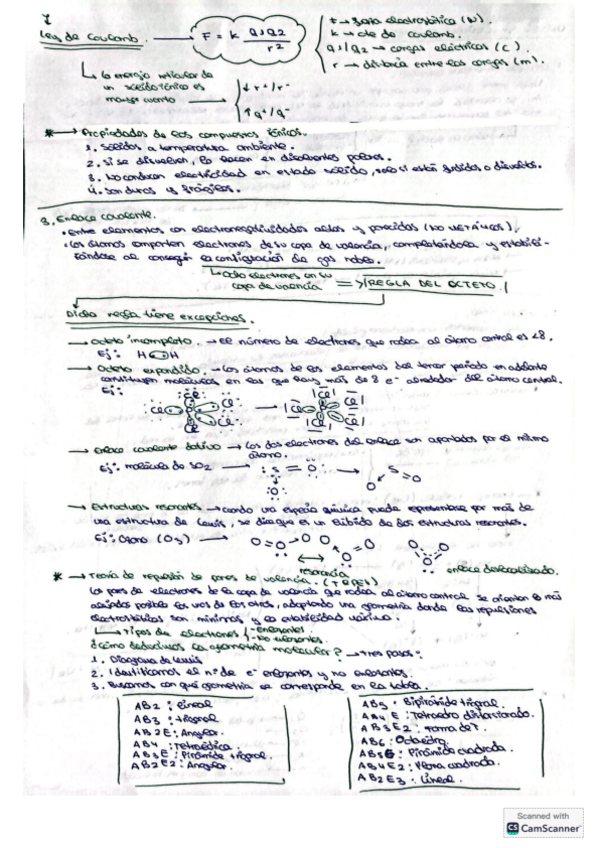 Ley de Coulomb. → F = k q1 q2 / r²
F → Fuerza electrostática (N).
k → cte de coulomb.
q1/q2 → cargas eléctricas (C).
r → distancia entre las cargas (m).
La energía reticular de
un sólido iónico es
mayor cuanto →
↓ r+/r-
↑ q+/q-
* → Propiedades de los compuestos iónicos.
1. Sólidos a temperatura ambiente.
2. Si se disuelven, lo hacen en disolventes polares.
3. No conducen electricidad en estado sólido, solo si están fundidos o disueltos.
4. Son duros y frágiles.
3. Enlace covalente.
• Entre elementos con electronegatividades altas y parecidas (NO METÁLICOS).
• Los átomos comparten electrones de su capa de valencia, completándola y estabili-
zándose al conseguir la configuración de gas noble.
Ocho electrones en su
capa de valencia => ¡REGLA DEL OCTETO!
Dicha regla tiene excepciones.
→ Octeto incompleto. → El número de electrones que rodea al átomo central es <8.
Ej: H H
→ Octeto expandido. → Los átomos de los elementos del tercer periodo en adelante
constituyen moléculas en las que hay más de 8 e- alrededor del átomo central.
Ej:
Cl P Cl → Cl P Cl
→ Enlace covalente dativo → Los dos electrones del enlace son aportados por el mismo
átomo.
Ej: molécula de SO2 → :S = O → S O O
→ Estructuras resonantes → cuando una especie química puede representarse por más de
una estructura de Lewis, se dice que es un híbrido de dos estructuras resonantes.
Ej: Ozono (O3)
resonancia
enlace deslocalizado.
* → Teoría de repulsión de pares de valencia. (TRPEV)
Los pares de electrones de la capa de valencia que rodea al átomo central se orientan lo más
alejados posible los unos de los otros, adoptando una geometría donde las repulsiones
electrostáticas son mínimas, y la estabilidad máxima.
Tipos de electrones
- enlazantes.
- No enlazantes.
¿Cómo deducimos la geometría molecular? → Tres pasos:
1. Diagrama de Lewis
2. Identificamos el nº de e- enlazantes y no enlazantes.
3. Buscamos con qué geometría se corresponde en la tabla.
AB2: Lineal
AB3: trigonal
AB2E: Angular.
AB4: Tetraédrica
AB3E: Pirámide trigonal.
AB2E2: Angular.
AB5: Bipirámide trigonal.
AB4E: Tetraedro distorsionado.
AB3E2: Forma de T.
AB6: Octaedro.
AB5E: Pirámide cuadrada.
AB4E2: Plana cuadrada.
AB2E3: Lineal.
Scanned with
CS CamScanner